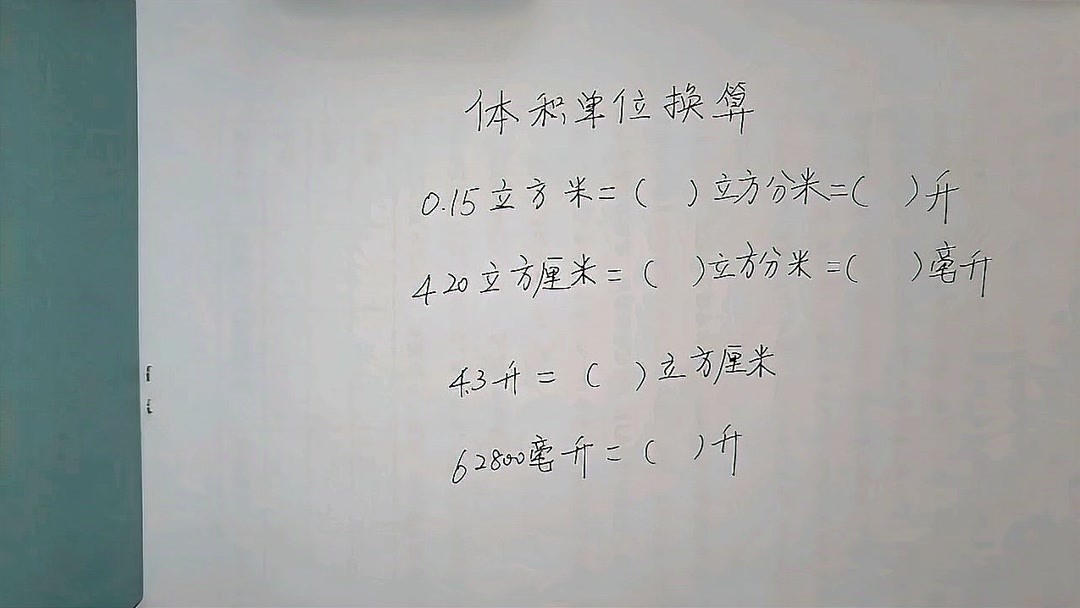 体积单位换算
0.15立方米=( )立方分米=( )升
420立方厘米=( )立方分米=( )毫升
4.3升=( )立方厘米
62800毫升=( )升